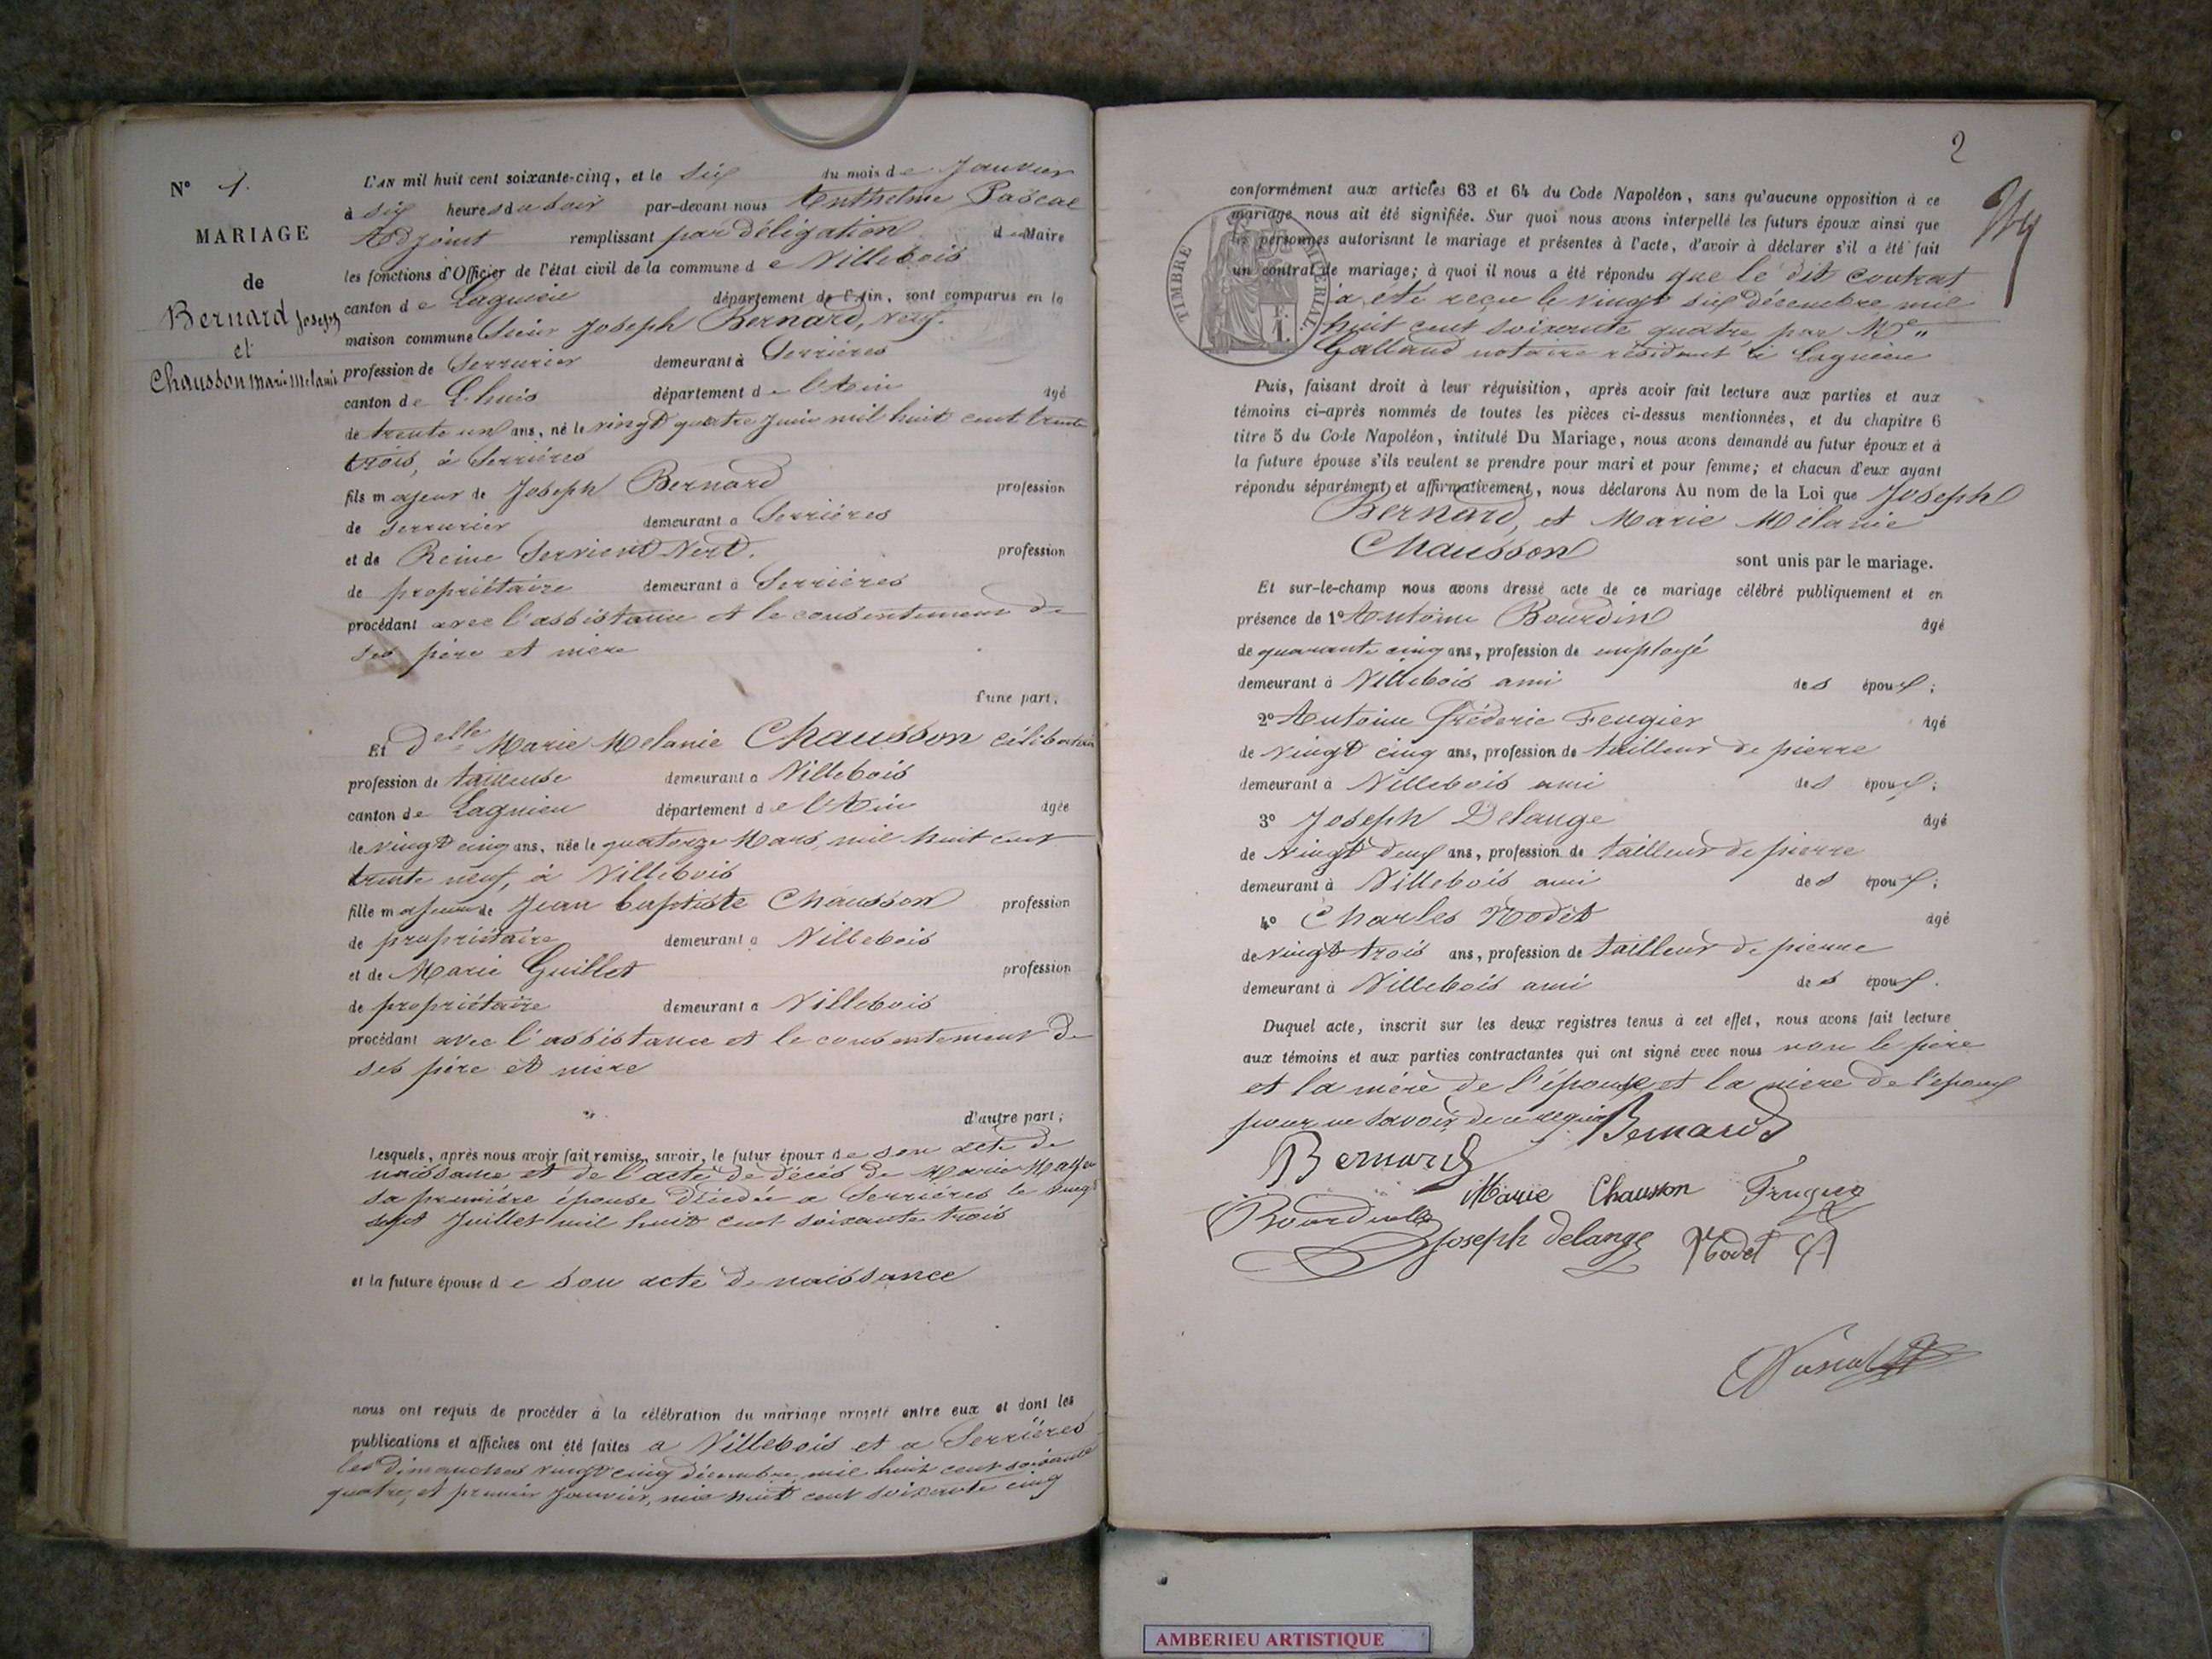 N° 1.
MARIAGE
de
Bernard Joseph
et
Chausson Marie Melanie
L'AN mil huit cent soixante-cinq, et le six du mois de Janvier
à six heures du soir par-devant nous Anthelme Pascal
Adjoint remplissant par déligation du Maire
les fonctions d'Officier de l'état civil de la commune de Villebois
canton de Lagnieu département de l'Ain, sont comparus en la
maison commune Sieur Joseph Bernard, veuf.
profession de Serrurier demeurant à Serrières
canton de Lhuis département de l'Ain âgé
de trente un ans, né le vingt quatre Juin mil huit cent trente
trois, à Serrières
fils majeur de Joseph Bernard profession
de serrurier demeurant à Serrières
et de Reine Servient Vert. profession
de propriétaire demeurant à Serrières
procédant avec l'assistance et le consentement de
ses père et mère
d'une part,
Et Delle Marie Melanie Chausson célibataire
profession de tailleuse demeurant à Villebois
canton de Lagnieu département de l'Ain âgée
de vingt cinq ans, née le quatorze Mars, mil huit cent
trente neuf, à Villebois
fille majeure de Jean baptiste Chausson profession
de propriétaire demeurant à Villebois
et de Marie Guillet profession
de propriétaire demeurant à Villebois
procédant avec l'assistance et le consentement de
ses père et mère
d'autre part;
Lesquels, après nous avoir fait remise, savoir, le futur époux de son acte de
naissance et de l'acte de décès de Marie
sa première épouse décédée a Serrières le vingt
sept Juillet mil huit cent soixante trois
et la future épouse de son acte de naissance
nous ont requis de procéder à la célébration du mariage projeté entre eux et dont les
publications et affiches ont été faites a Villebois et a Serrières
les Dimanches vingt cinq décembre mil huit cent soixante
quatre, et premier Janvier, mil huit cent soixante cinq
2
conformément aux articles 63 et 64 du Code Napoléon, sans qu'aucune opposition à ce
mariage nous ait été signifiée. Sur quoi nous avons interpellé les futurs époux ainsi que
les personnes autorisant le mariage et présentes à l'acte, d'avoir à déclarer s'il a été fait
un contrat de mariage; à quoi il nous a été répondu que le dit contrat
a été reçu le vingt six décembre mil
huit cent soixante quatre par Me "
Galland notaire résidant à Lagnieu
TIMBRE IMPÉRIAL.
Puis, faisant droit à leur réquisition, après avoir fait lecture aux parties et aux
témoins ci-après nommés de toutes les pièces ci-dessus mentionnées, et du chapitre 6
titre 5 du Code Napoléon, intitulé Du Mariage, nous avons demandé au futur époux et à
la future épouse s'ils veulent se prendre pour mari et pour femme; et chacun d'eux ayant
répondu séparément et affirmativement, nous déclarons Au nom de la Loi que Joseph
Bernard, et Marie Mélanie
Chausson sont unis par le mariage.
Et sur-le-champ nous avons dressé acte de ce mariage célébré publiquement et en
présence de 1° Antoine Bourdin âgé
de quarante cinq ans, profession de employé
demeurant à Villebois ami des époux;
2° Antoine Fréderic Feugier âgé
de vingt cinq ans, profession de tailleur de pierre
demeurant à Villebois ami des époux;
3° Joseph Delange âgé
de vingt deux ans, profession de tailleur de pierre
demeurant à Villebois ami des époux;
4° Charles Nodet âgé
de vingt trois ans, profession de tailleur de pierre
demeurant à Villebois ami des époux.
Duquel acte, inscrit sur les deux registres tenus à cet effet, nous avons fait lecture
aux témoins et aux parties contractantes qui ont signé avec nous non le père
et la mère de l'épouse, et la mère de l'époux
pour ne savoir de ce requis
Bernard
Bernard
Marie Chausson
Joseph delange Nodet
AMBERIEU ARTISTIQUE